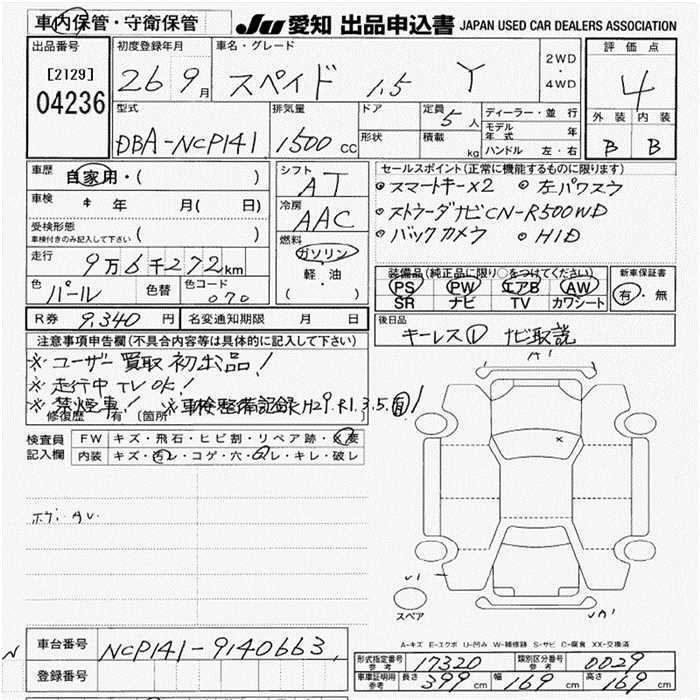 車内保管・守衛保管
JU 愛知 出品申込書 JAPAN USED CAR DEALERS ASSOCIATION
出品番号 初度登録年月 車名・グレード 2WD ・ 4WD 評価点
[2129] 04236 26 9月 スペイド 1.5 Y 4
型式 排気量 ドア 定員 5人 ディーラー・並行 外装 内装
DBA-NCP141 1500cc 形状 積載 kg モデル年式 年 B B
ハンドル 左・右
車歴 自家用・( ) シフト AT セールスポイント(正常に機能するものに限ります)
車検 年 月( 日) 冷房 AAC ・スマートキーX2 ・左パワスラ
受検形態 車検付きのみ記入して下さい ( ) 燃料 ガソリン 軽・油 ( )
・ストラーダナビCN-R500WD
・バックカメラ ・HID
走行 9万6千272km
装備品(純正品に限り○をつけてください) 新車保証書
色 パール 色替 色コード 070 PS PW エアB AW 有・無
SR ナビ TV カワシート
R券 9,340円 名変通知期限 月 日 後日品
キーレス① ナビ取説
注意事項申告欄(不具合内容等は具体的に記入して下さい)
※ユーザー買取初出品!
※走行中TV OK!
※禁煙車! ※車検整備記録H29.R1.3.5.有!
修復歴 有 [箇所
A1
検査員記入欄 FW キズ・飛石・ヒビ割・リペア跡・X要
内装 キズ・汚レ・コゲ・穴・凸レ・キレ・破レ
×
U1
スペア
A-キズ E-エクボ U-凹み W-補修跡 S-サビ C-腐食 XX-交換済
車台番号 NCP141-9140663
登録番号
形式指定番号 参考 17320 類別区分番号 参考 0029
車庫証明用 参考 長さ 399cm 幅 169cm 高さ 169cm